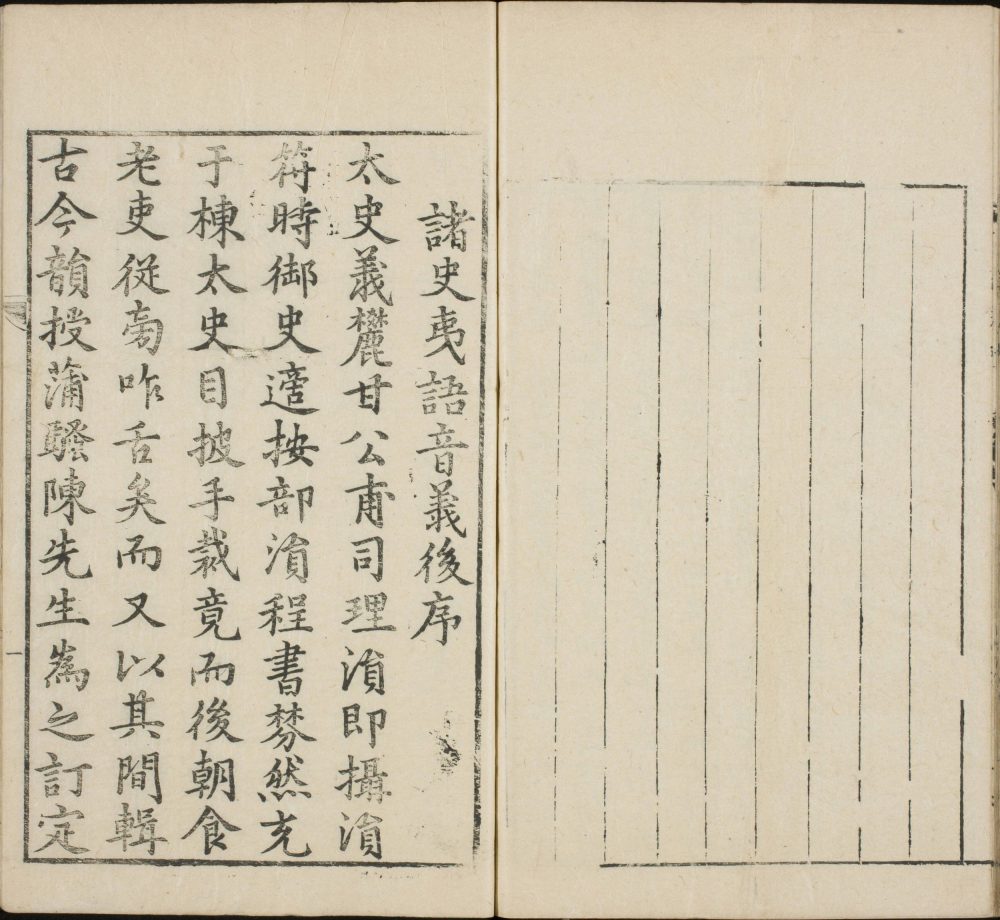 諸史夷語音義後序
太史義麓甘公甫司理湞即攝湞
符時御史適按部湞程書棼然充
于棟太史目披手裁竟而後朝食
老吏從旁咋舌矣而又以其間輯
古今韻授蒲騷陳先生為之訂定
一